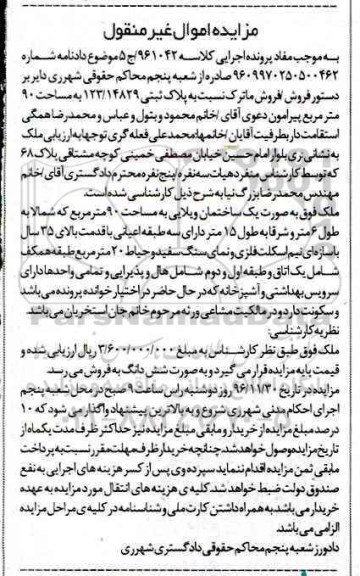 مزایده اموال غیر منقول
به موجب مفاد پرونده اجرایی کلاسه ۹۶۱۰۴۲/ج ۵ موضوع دادنامه شماره
۹۶۰۹۹۷۰۲۵۰۵۰۰۴۶۲ صادره از شعبه پنجم محاکم حقوقی شهرری دایر بر
دستور فروش /فروش ماترک نسبت به پلاک ثبتی ۱۲۳/۱۴۸۲۹ به مساحت ۹۰
متر مربع پیرامون دعوی آقای /خانم محمود و بتول و عباس و محمدرضا همگی
استقامت دار بطرفیت آقایان /خانمها محمدعلی فعله گری توجها به ارزیابی ملک
به نشانی :ری بلوار امام حسین خیابان مصطفی خمینی کوچه مشتاقی پلاک ۶۸
که توسط کارشناس منفرد هیات سه نفره/پنج نفره محترم دادگستری آقای /خانم
مهندس محمدرضا بزرگ نیا به شرح ذیل کارشناسی شده است.
ملک فوق به صورت یک ساختمان ویلایی به مساحت ۹۰ متر مربع که شمالا به
طول ۶ متر و شرقا به طول ۱۵ متر دارای سه طبقه اعیانی با قدمت بالای ۳۵ سال
با سازه ای نیم اسکلت فلزی و نمای سنگ سفید و حیاط ۲۰ متر مربع طبقه همکف
شامل یک اتاق و طبقه اول و دوم شامل هال و پذیرایی و تمامی واحدها دارای
سرویس بهداشتی و آشپزخانه که در حال حاضر در اختیار خوانده پرونده می باشد
و سکونت دارد و در مالکیت مشاعی ورثه مرحوم خانم جان استخریان می باشد.
نظریه کارشناسی:
ملک فوق طبق نظر کارشناس به مبلغ ۳/۶۰۰/۰۰۰/۰۰۰ ریال ارزیابی شده و
قیمت پایه مزایده قرار می گیرد و به صورت شش دانگ به فروش می رسد.
مزایده در تاریخ ۹۶/۱۱/۳۰ روز دوشنبه راس ساعت ۹ صبح در محل شعبه پنجم
اجرای احکام مدنی شهرری شروع و به بالاترین پیشنهاد واگذار می شود که ۱۰
درصد مبلغ مزایده از خریدار و مابقی مبلغ مزایده نیز حداکثر ظرف مدت یکماه از
تاریخ مزایده وصول خواهد شد.چنانچه خریدار ظرف مهلت مقرر نسبت به پرداخت
مابقی ثمن مزایده اقدام ننماید سپرده وی پس از کسر هزینه های اجرایی به نفع
صندوق دولت ضبط خواهد شد. کلیه ی هزینه های انتقال مورد مزایده به عهده
خریدار می باشد.به همراه داشتن کارت ملی و شناسنامه در کلیه ی مراحل مزایده
الزامی می باشد.
دادورز شعبه پنجم محاکم حقوقی دادگستری شهرری